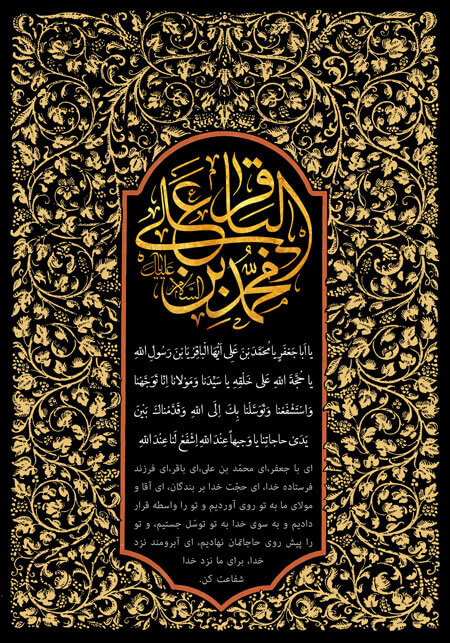 محمد بن علی الباقر علیه السلام
یا اَبا جَعْفَرٍ یا مُحَمَّدَ بْنَ عَلِیٍّ اَیُّهَا الْباقِرُ یَا بْنَ رَسُولِ اللهِ
یا حُجَّةَ اللهِ عَلی خَلْقِهِ یا سَیِّدَنا وَمَوْلانا اِنّا تَوَجَّهْنا
وَاسْتَشْفَعْنا وَتَوَسَّلْنا بِكَ اِلَی اللهِ وَقَدَّمْناكَ بَیْنَ
یَدَیْ حاجاتِنا یا وَجیهاً عِنْدَ اللهِ اِشْفَعْ لَنا عِنْدَ اللهِ
ای با جعفر،ای محمّد بن علی،ای باقر،ای فرزند
فرستاده خدا، ای حجّت خدا بر بندگان، ای آقا و
مولای ما به تو روی آوردیم و تو را واسطه قرار
دادیم و به سوی خدا به تو توسّل جستیم، و تو
را پیش روی حاجاتمان نهادیم، ای آبرومند نزد
خدا، برای ما نزد خدا
شفاعت کن.